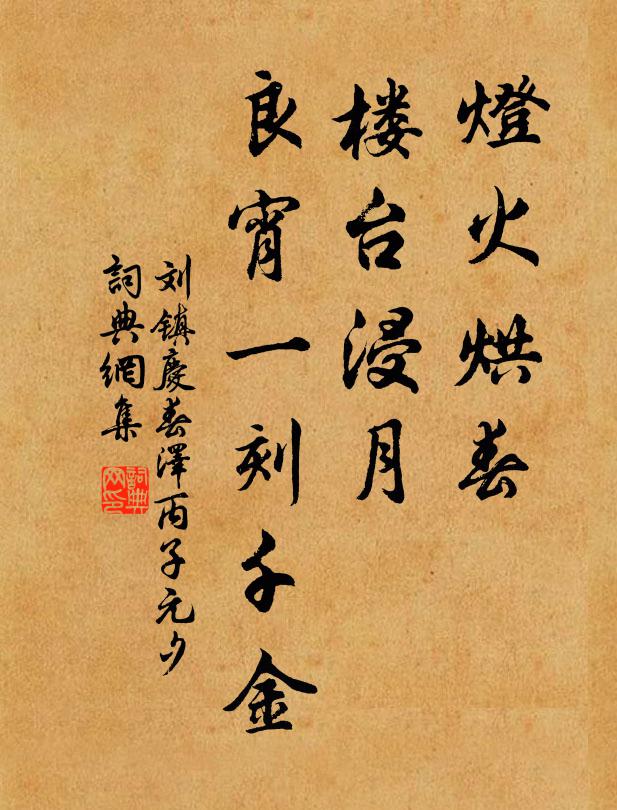 燈火烘春
楼台浸月
良宵一刻千金
刘镇慶春澤丙子元夕
詞典網集
詞典
网印